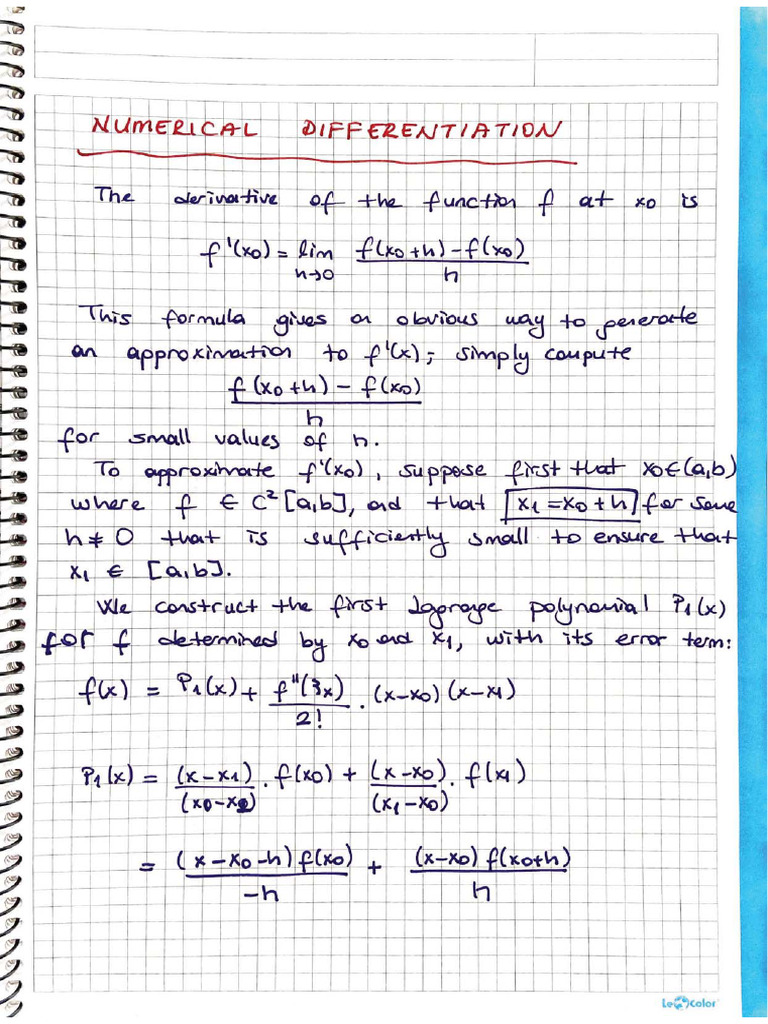 NUMERICAL DIFFERENTIATION
The derivative of the function f at x0 is
f'(x0) = lim h→0 f(x0+h) - f(x0) / h
This formula gives an obvious way to generate
an approximation to f'(x); simply compute
f(x0+h) - f(x0) / h
for small values of h.
To approximate f'(x0), suppose first that x0∈(a,b)
where f ∈ C²[a,b], and that x1 = x0 + h for some
h ≠ 0 that is sufficiently small to ensure that
x1 ∈ [a,b].
We construct the first lagrange polynomial P1(x)
for f determined by x0 and x1, with its error term:
f(x) = P1(x) + f''(ξx) / 2! · (x-x0)(x-x1)
P1(x) = (x-x1) / (x0-x1) · f(x0) + (x-x0) / (x1-x0) · f(x1)
= (x-x0-h) f(x0) / -h + (x-x0) f(x0+h) / h
Le Color